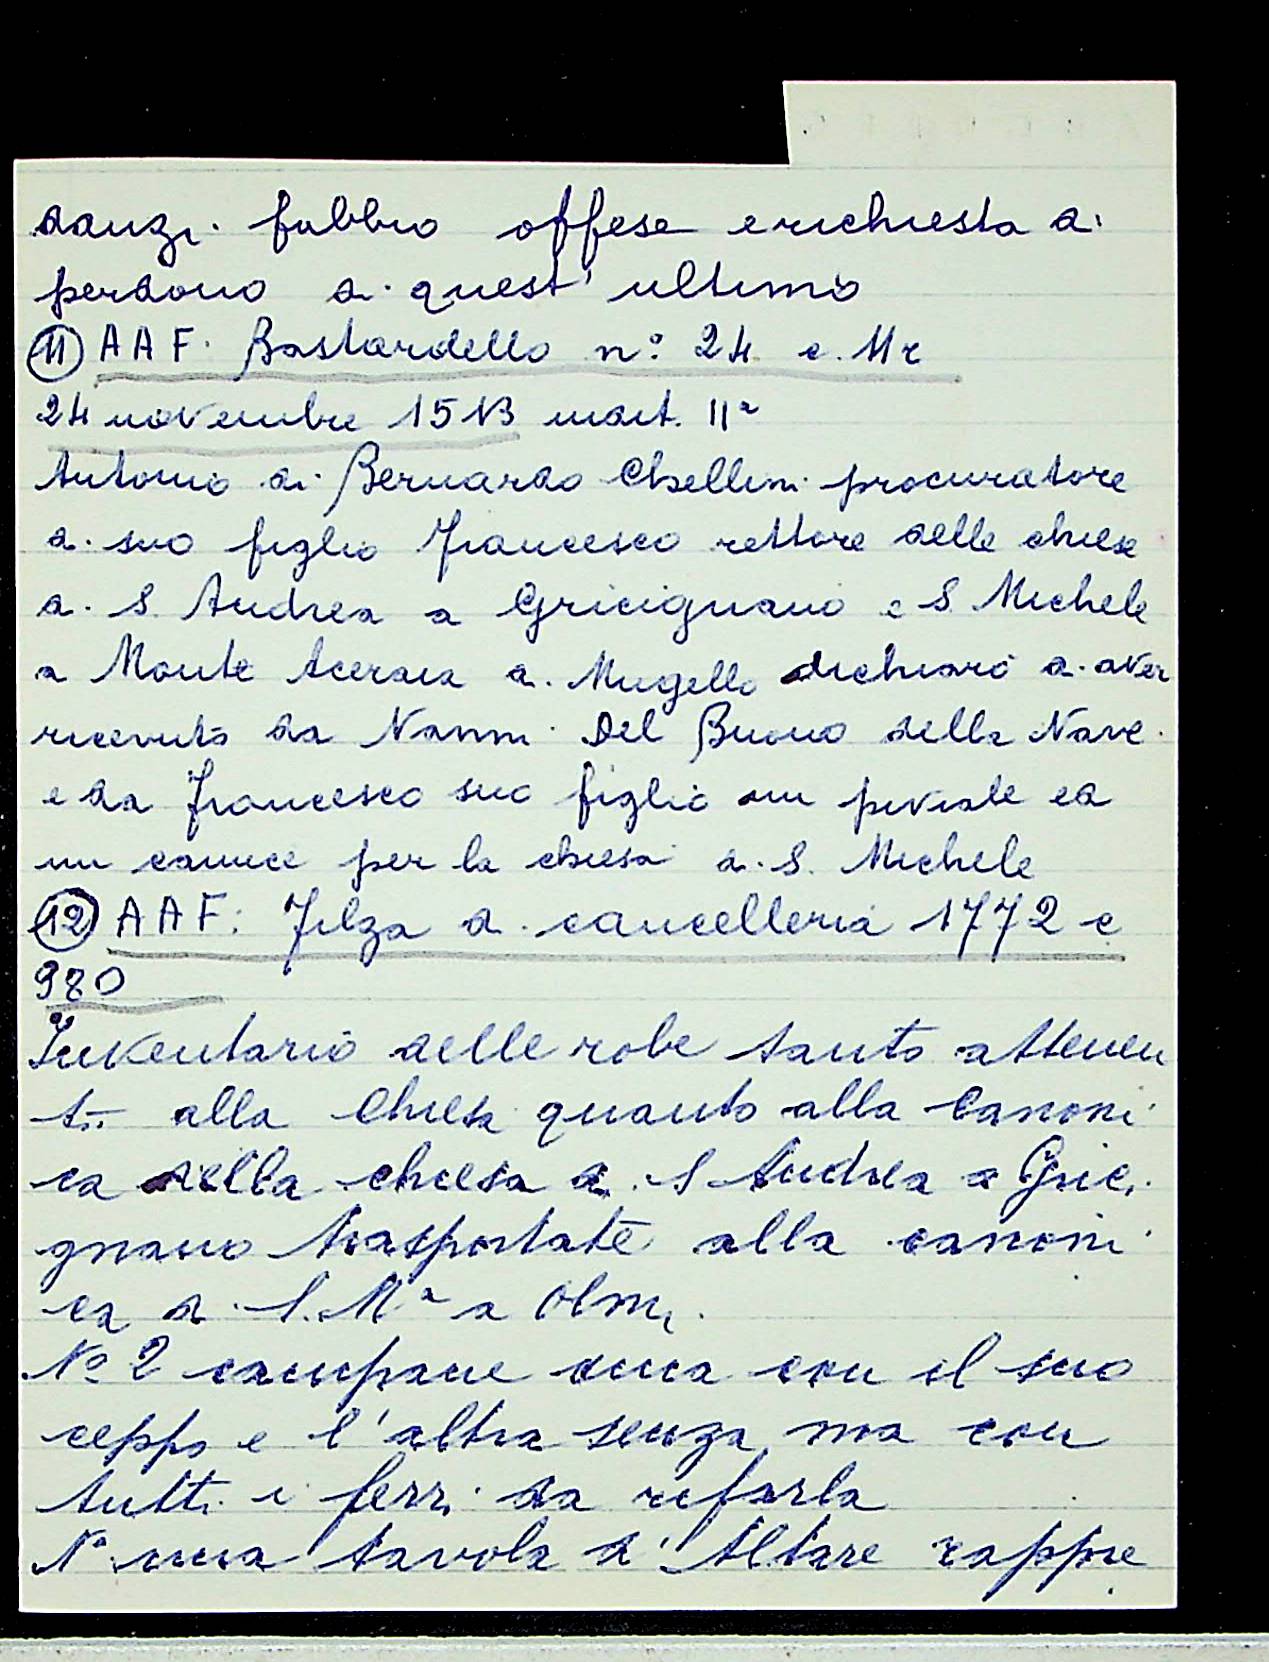 danzi. fabbro offese e richiesta di
perdono di quest'ultimo
(11) AAF. Bastardello n° 24 c. 11r
24 novembre 1513 mart. IIa
Antonio di Bernardo Chellini procuratore
di suo figlio Francesco rettore delle chiese
di S. Andrea a Gricignano e S. Michele
a Monte Aceraia di Mugello dichiarò di aver
ricevuto da Nanni Del Buono della Nave
e da Francesco suo figlio un piviale ed
un camice per la chiesa di S. Michele
(12) AAF. Filza di cancelleria 1772 c
980
Inventario delle robe tanto attenen
ti alla Chiesa quanto alla Canoni
ca della chiesa di S Andrea a Grici
gnano trasportate alla canoni
ca di S. Ma a Olmi.
N° 2 campane una con il suo
ceppo e l'altra senza ma con
tutti i ferri da rifarla
N° una tavola d'Altare rappre